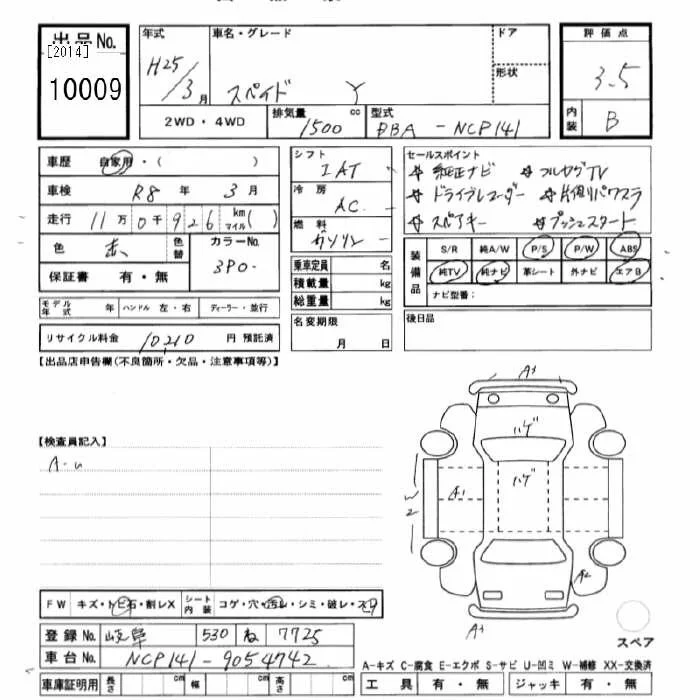 出品No.
[2014]
10009
年式
H25/3月
車名・グレード
スペイド Y
ドア
形状
評価点
3.5
内装
B
2WD・4WD
排気量
1500 cc
型式
DBA-NCP141
車歴 自家用・( )
車検 R8 年 3 月
走行 11万0千926 km マイル( )
色 赤 色替
カラーNo.
3P0-
保証書 有・無
シフト
IAT
冷房
AC
燃料
ガソリン
乗車定員 名
積載量 kg
総重量 kg
セールスポイント
純正ナビ フルセグTV
ドライブレコーダー 片側パワスラ
スペアキー プッシュスタート
装備品
S/R 純A/W P/S P/W ABS
純TV 純ナビ 革シート 外ナビ エアB
ナビ型番:
モデル年式 年 ハンドル 左・右 ディーラー・並行
リサイクル料金 10,210 円 預託済
名変期限
月 日
後日品
【出品店申告欄(不良箇所・欠品・注意事項等)】
【検査員記入】
A-u
A1
ハゲ
ハゲ
A1
W2
A2
A1
スペア
FW キズ・トビ石・割レX シート内装 コゲ・穴・汚レ・シミ・破レ・スリ
登録No. 岐阜 530 ね 7725
車台No. NCP141-9054742
A-キズ C-腐食 E-エクボ S-サビ U-凹ミ W-補修 XX-交換済
車庫証明用 長さ cm 幅 cm 高さ cm
工具 有・無 ジャッキ 有・無